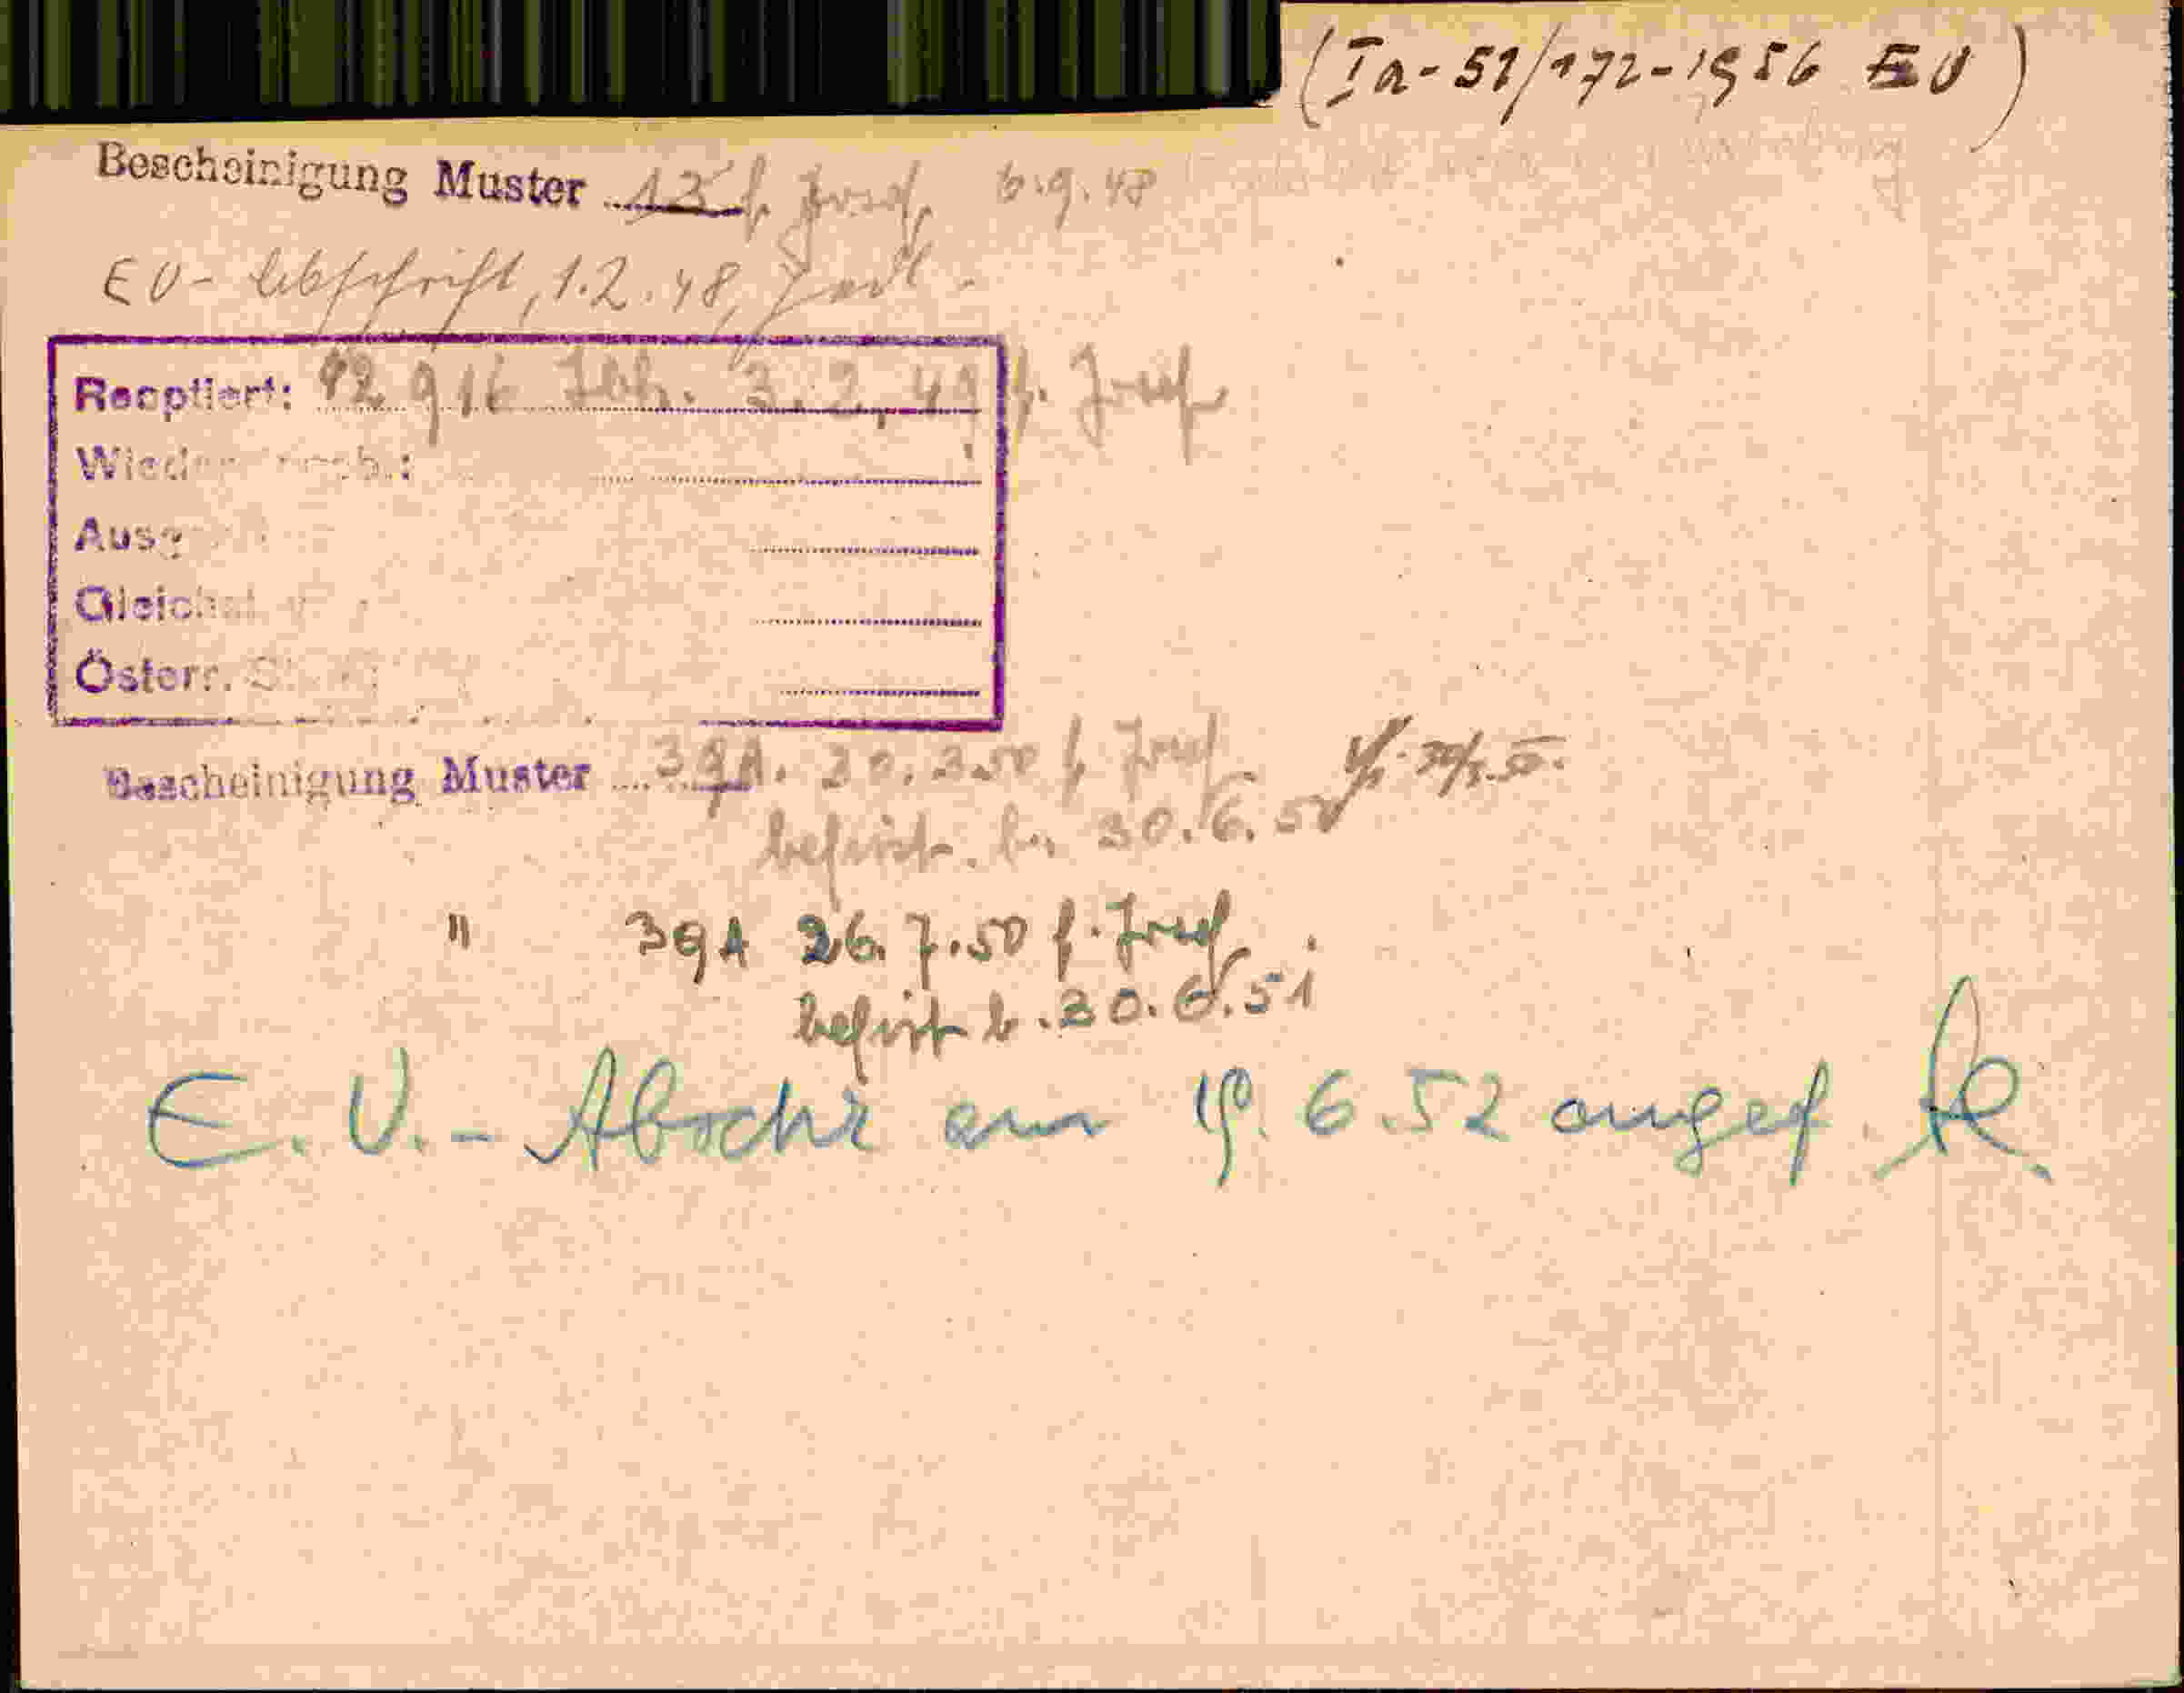 (Ia-51/172-1956 EU)
Bescheinigung Muster 13 f. Josef, 6.9.48
EU- Abschrift, 1.2.48,
Reoptiert: 12 916 3.2.49 f. Josef
Wieder
Ausg
Gleich
Österr. St
Bescheinigung Muster 39A. 30.3.50 f. Josef
befrist. b. 30.6.50
" 39A 26.7.50 f. Josef
befrist b. 30.6.51
E.U.- Abschr am 19.6.52 ausgef.